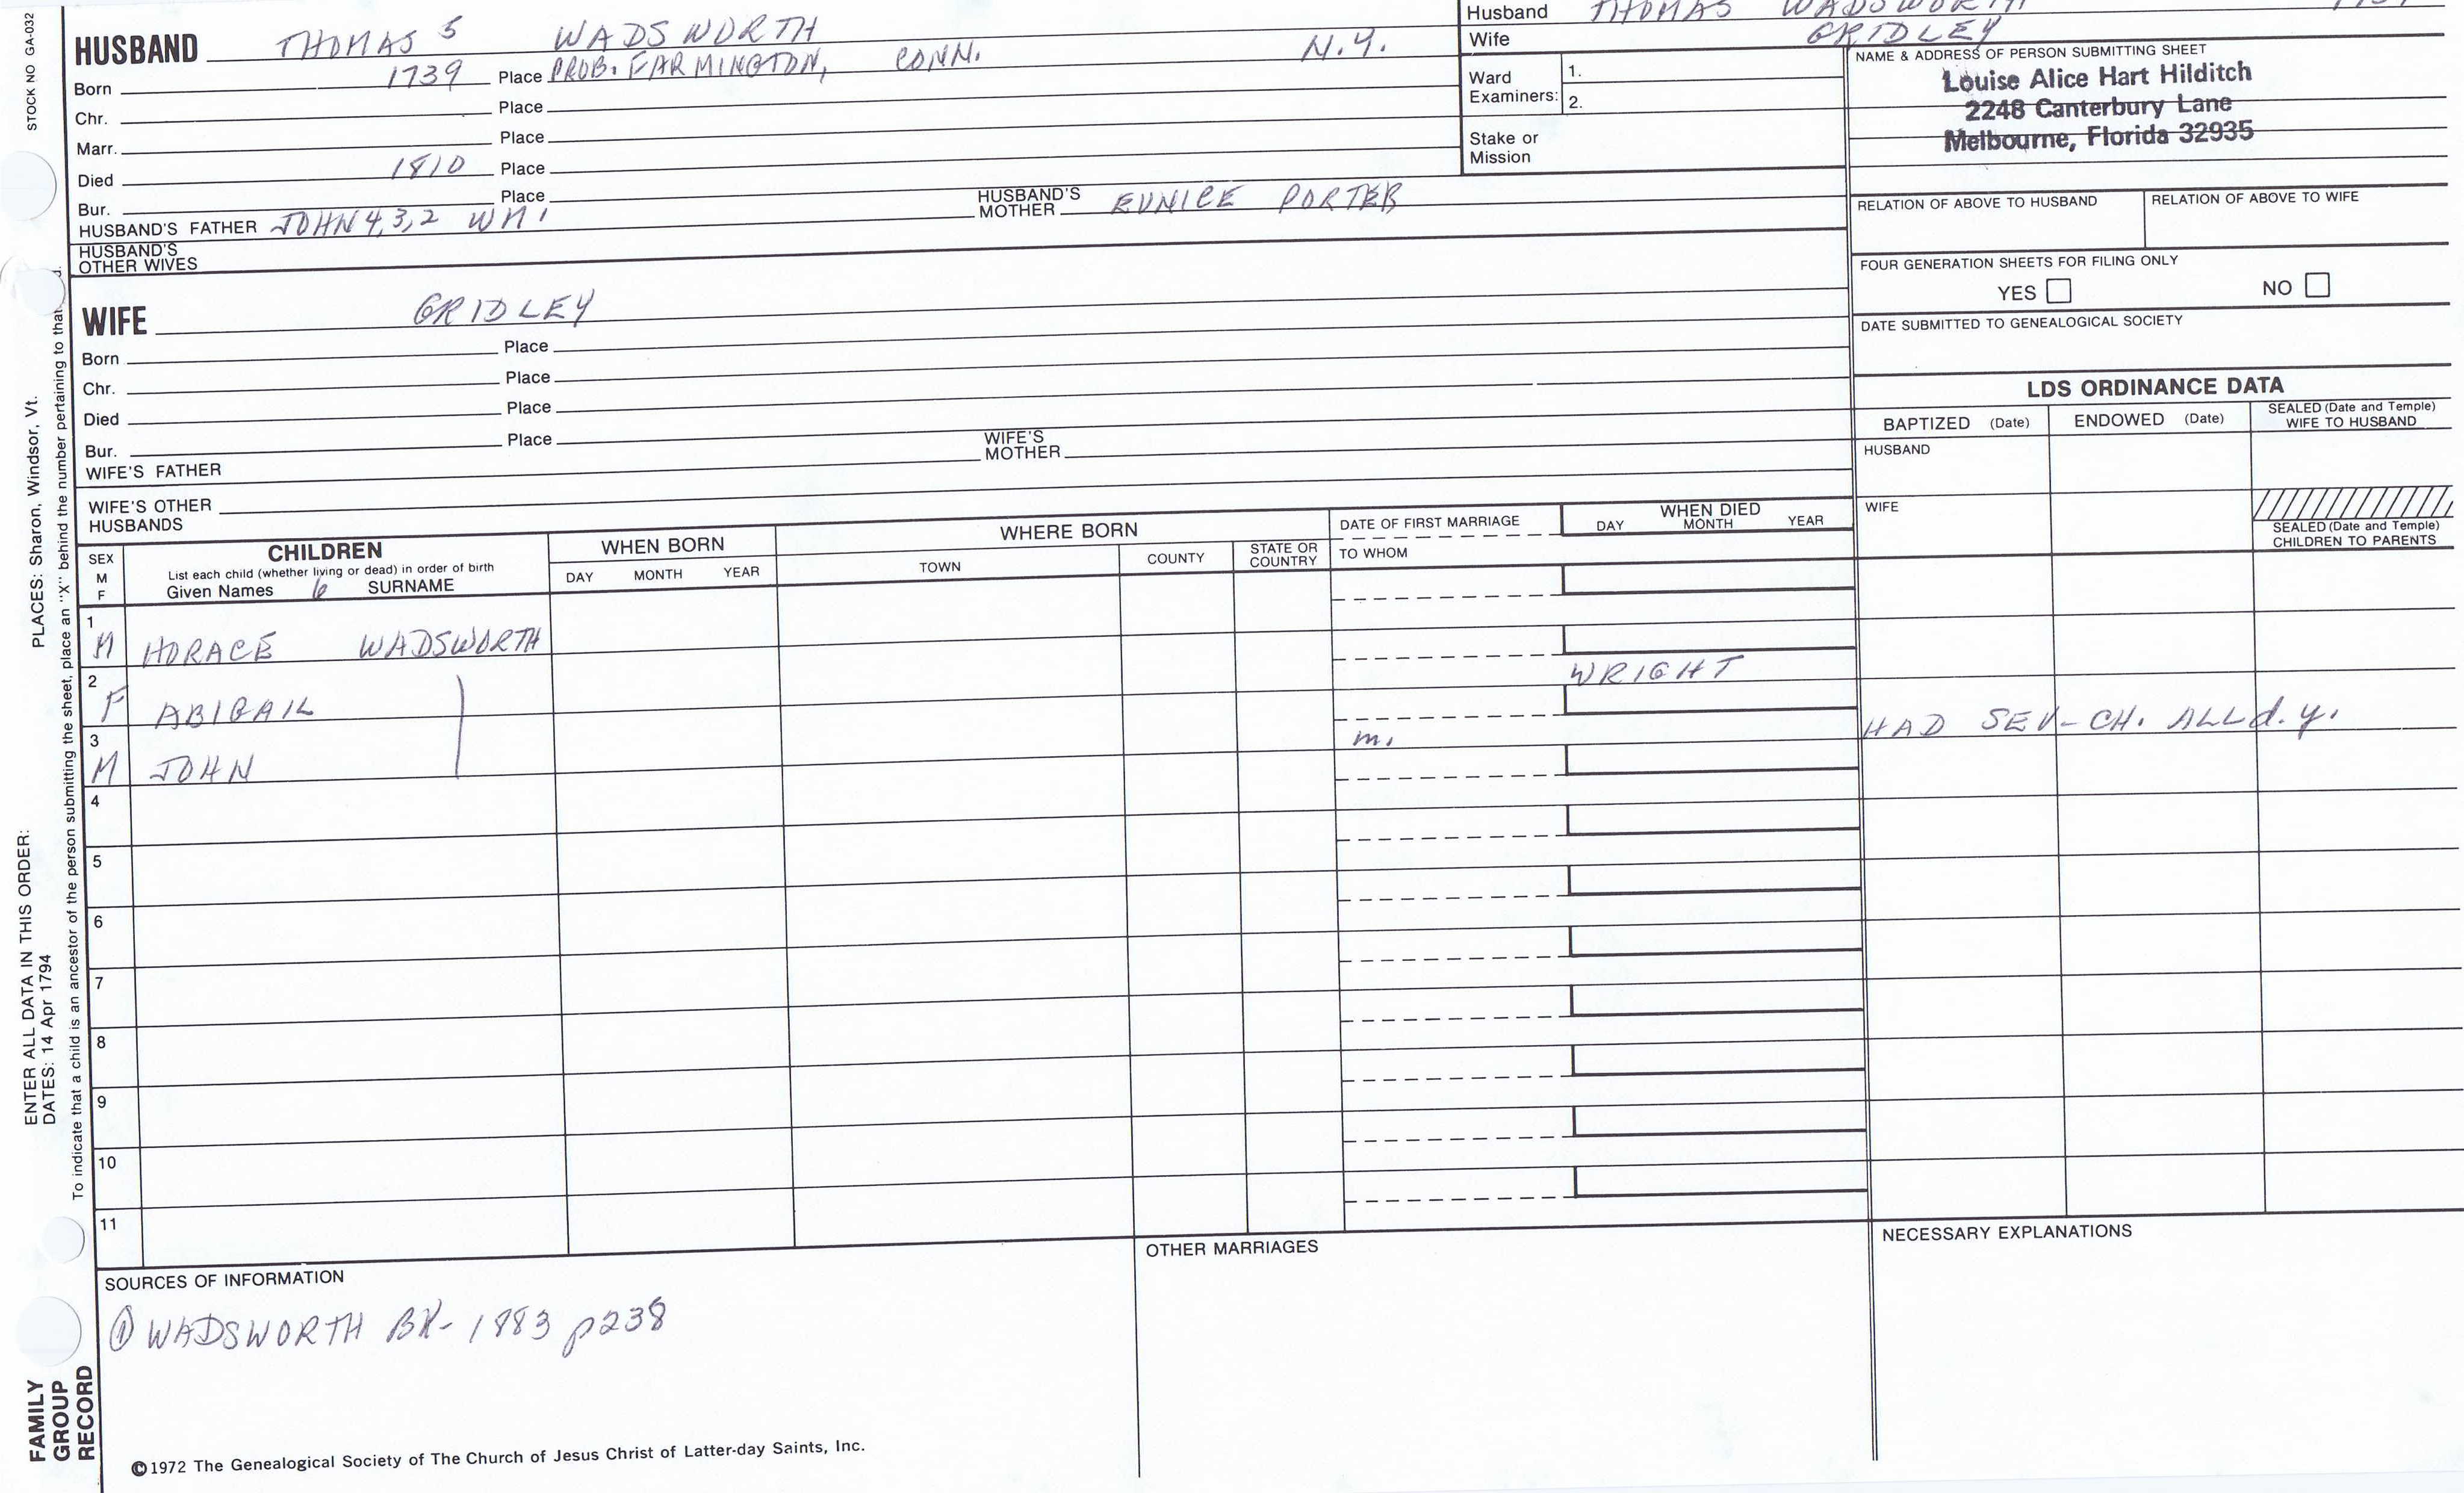 STOCK NO GA-032
PLACES: Sharon, Windsor, Vt.
ENTER ALL DATA IN THIS ORDER:
DATES: 14 Apr 1794
To indicate that a child is an ancestor of the person submitting the sheet, place an "X" behind the number pertaining to that d.
FAMILY
GROUP
RECORD
HUSBAND THOMAS 5 WADSWORTH N.Y.
Born 1739 Place PROB. FARMINGTON, CONN.
Chr. Place
Marr. Place
Died 1810 Place
Bur. Place
HUSBAND'S FATHER JOHN 4,3,2 WM 1
HUSBAND'S MOTHER EUNICE PORTER
HUSBAND'S OTHER WIVES
WIFE GRIDLEY
Born Place
Chr. Place
Died Place
Bur. Place
WIFE'S FATHER
WIFE'S MOTHER
WIFE'S OTHER HUSBANDS
Husband THOMAS WADSWORTH
Wife GRIDLEY
Ward Examiners: 1.
2.
Stake or Mission
NAME & ADDRESS OF PERSON SUBMITTING SHEET
Louise Alice Hart Hilditch
2248 Canterbury Lane
Melbourne, Florida 32935
RELATION OF ABOVE TO HUSBAND RELATION OF ABOVE TO WIFE
FOUR GENERATION SHEETS FOR FILING ONLY
YES NO
DATE SUBMITTED TO GENEALOGICAL SOCIETY
LDS ORDINANCE DATA
BAPTIZED (Date) ENDOWED (Date) SEALED (Date and Temple) WIFE TO HUSBAND
HUSBAND
WIFE
SEALED (Date and Temple) CHILDREN TO PARENTS
SEX M F
CHILDREN
List each child (whether living or dead) in order of birth
Given Names 6 SURNAME
WHEN BORN
DAY MONTH YEAR
WHERE BORN
TOWN COUNTY STATE OR COUNTRY
DATE OF FIRST MARRIAGE
TO WHOM
WHEN DIED
DAY MONTH YEAR
1 M HORACE WADSWORTH
2 F ABIGAIL WRIGHT
3 M JOHN m. HAD SEV- CH. ALL d. y.
4
5
6
7
8
9
10
11
SOURCES OF INFORMATION
① WADSWORTH BK- 1883 p238
OTHER MARRIAGES
NECESSARY EXPLANATIONS
©1972 The Genealogical Society of The Church of Jesus Christ of Latter-day Saints, Inc.